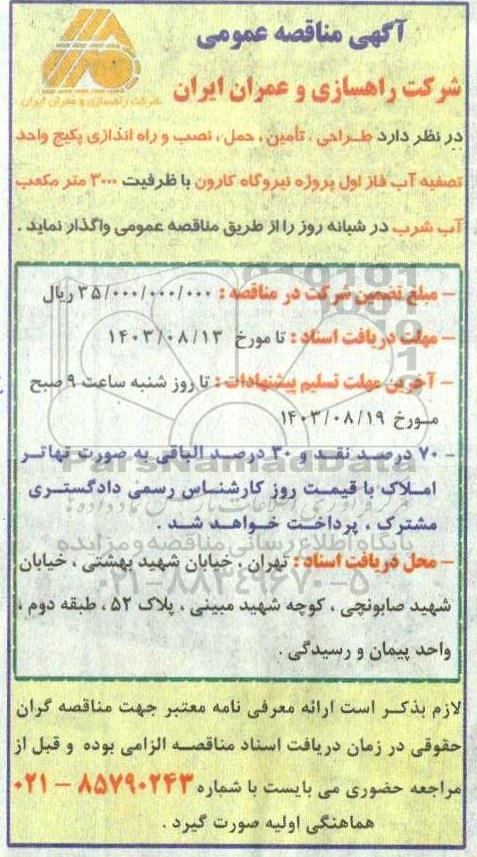 آگهی مناقصه عمومی
شرکت راهسازی و عمران ایران
شرکت راهسازی و عمران ایران
در نظر دارد طراحی ، تأمین ، حمل ، نصب و راه اندازی پکیج واحد
تصفیه آب فاز اول پروژه نیروگاه کارون با ظرفیت ۳۰۰۰ متر مکعب
آب شرب در شبانه روز را از طریق مناقصه عمومی واگذار نماید .
– مبلغ تضمین شرکت در مناقصه : ۳۵/۰۰۰/۰۰۰/۰۰۰ ریال
– مهلت دریافت اسناد : تا مورخ ۱۴۰۳/۰۸/۱۳
– آخرین مهلت تسلیم پیشنهادات : تا روز شنبه ساعت ۹ صبح
مورخ ۱۴۰۳/۰۸/۱۹
- ۷۰ درصد نقد و ۳۰ درصد الباقی به صورت تهاتر
املاک با قیمت روز کارشناس رسمی دادگستری
مشترک ، پرداخت خواهد شد .
– محل دریافت اسناد : تهران ، خیابان شهید بهشتی ، خیابان
شهید صابونچی ، کوچه شهید مبینی ، پلاک ۵۲ ، طبقه دوم ،
واحد پیمان و رسیدگی .
لازم بذکر است ارائه معرفی نامه معتبر جهت مناقصه گران
حقوقی در زمان دریافت اسناد مناقصه الزامی بوده و قبل از
مراجعه حضوری می بایست با شماره ۸۵۷۹۰۲۴۳ – ۰۲۱
هماهنگی اولیه صورت گیرد .
ParsNamadData
پایگاه اطلاع رسانی مناقصه و مزایده
۰۲۱-۸۸۳۴۹۶۷۰-۵